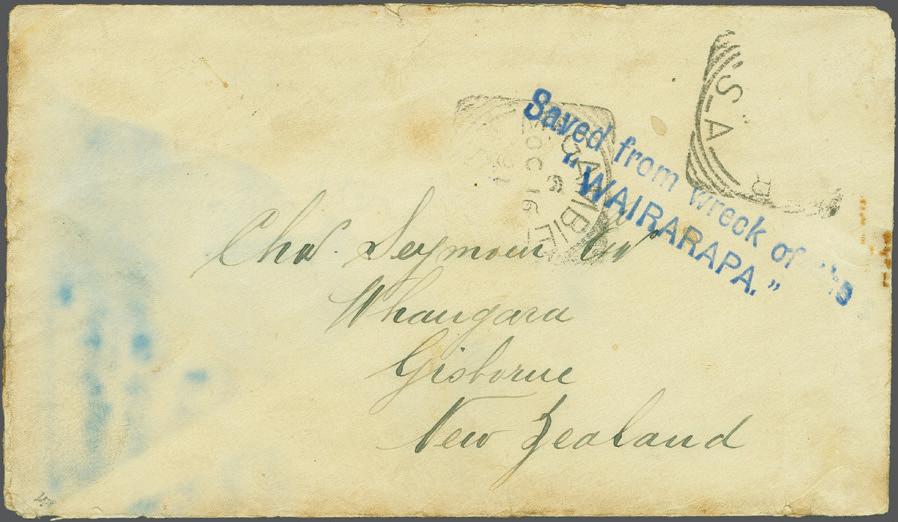 Saved from wreck of the
"WAIRARAPA."
S.A
GAMBIE
OC 16
Chas. Seymour Esq
Whangara
Gisborne
New Zealand